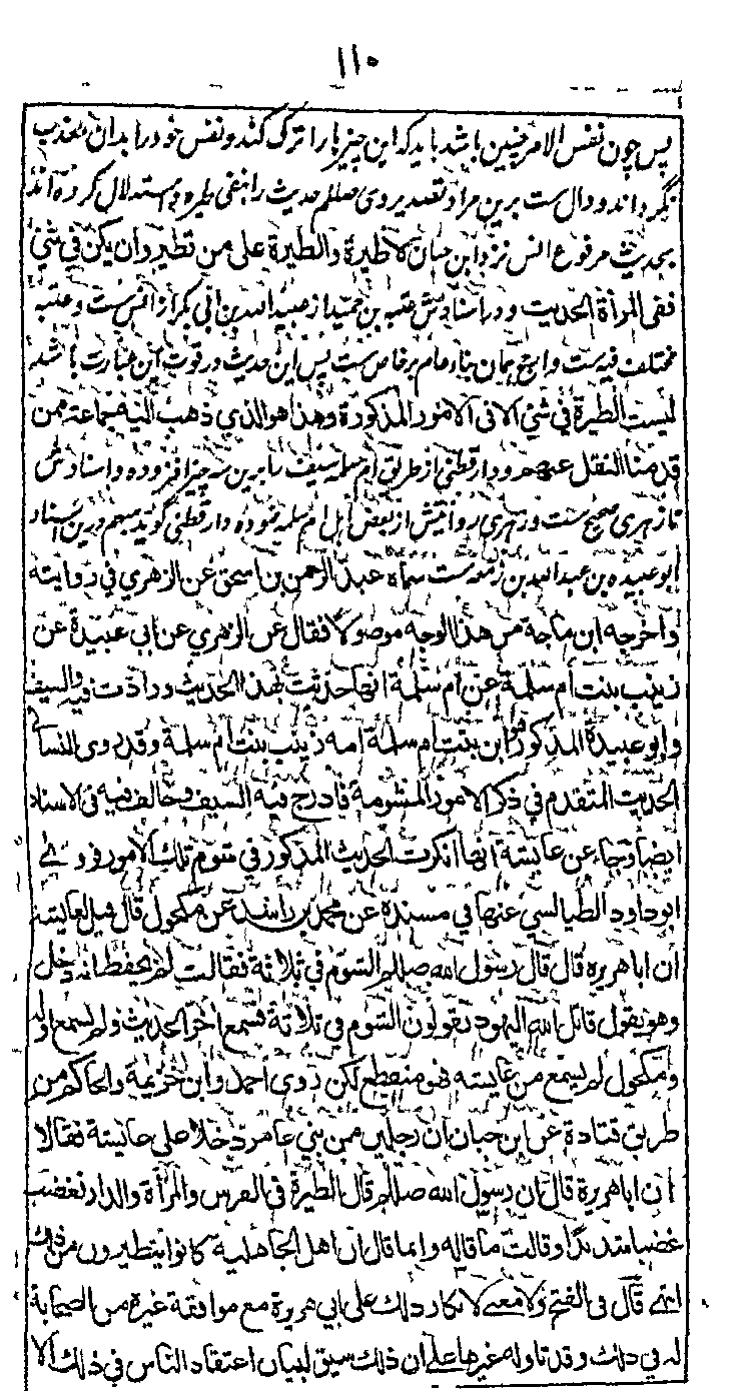 ١١٠
پس چون نفس الامر چنین باشد باید که این چیزها را ترک کند و نفس خود را بدان معذب
نگرداند و دال ست برین مراد تصدیر وی صللم حدیث را بنفی طیره و استدلال کرده اند
بحدیث مرفوع انس نزد ابن حبان لا طيرة والطيرة على من تطير وان يكن في شئ
ففى المرأة الحديث و در اسنادش عتبه بن حمید از عبید الله بن ابی بکر از انس ست و عتبه
مختلف فیه ست و راجح همان بناء عام بر خاص ست پس این حدیث در قوت این عبارت باشد
ليست الطيرة في شئ الا فى الامور المذكورة وهذا هو الذي ذهب اليه جماعة ممن
قدمنا النقل عنهم و دارقطنی از طریق ام سلمه سیف را برین سه چیز افزوده و اسنادش
تا زهری صحیح ست و زهری روایتش از بعض اهل ام سلمه نموده دارقطنی گوید مبهم درین اسناد
ابو عبیده بن عبد الله بن زمعه ست سماه عبد الرحمن بن اسحق عن الزهري في روايته
واخرجه ابن ماجة من هذا الوجه موصولا فقال عن الزهري عن ابي عبيدة عن
زينب بنت ام سلمة عن ام سلمة انها حدثت بهذا الحديث وزادت فيه والسيف
وابو عبيدة المذكور هو ابن بنت ام سلمة امه زينب بنت ام سلمة وقد روى النسائي
الحديث المتقدم في ذكر الامور المشومة فادرج فيه السيف وخالف فيه فى الاسناد
ايضا وجاء عن عايشة انها انكرت الحديث المذكور في شوم تلك الامور فروے
ابو داود الطيالسي عنها في مسنده عن محمد بن راشد عن مكحول قال قيل لعايشة
ان ابا هريرة قال قال رسول الله صللم الشوم في ثلاثة فقالت لم يحفظ انه دخل
وهو يقول قاتل الله اليهود يقولون الشوم في ثلاثة فسمع اخر الحديث ولم يسمع اوله
ومكحول لم يسمع من عايشه فهو منقطع لكن روى احمد وابن خزيمة والحاكم من
طريق قتادة عن ابن حبان ان رجلين من بني عامر دخلا على عايشة فقالا
ان ابا هريرة قال ان رسول الله صللم قال الطيرة فى الفرس والمرأة والدار فغضبت
غضبا شديدا وقالت ما قاله وانما قال ان اهل الجاهلية كانوا يتطيرون من ذلك
انتهى قال فى الفتح ولا معنى لانكار ذلك على ابي هريرة مع موافقة غيره من الصحابة
له في ذلك وقد تاوله غيرها على ان ذلك سيق لبيان اعتقاد الناس في ذلك الا